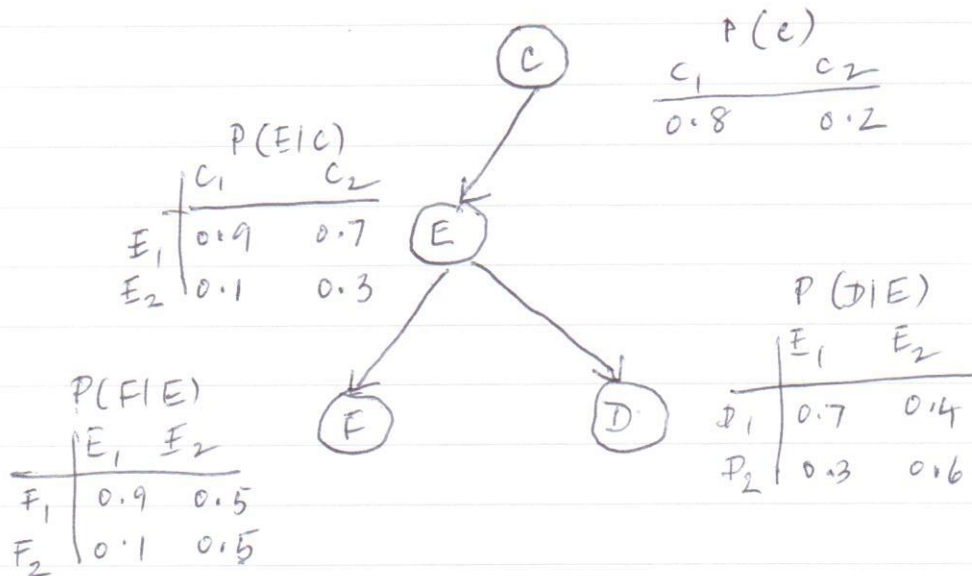 C
P(c)
C1 C2
0.8 0.2
P(E|C)
C1 C2
E1 0.9 0.7
E2 0.1 0.3
E
P(D|E)
E1 E2
D1 0.7 0.4
D2 0.3 0.6
P(F|E)
E1 E2
F1 0.9 0.5
F2 0.1 0.5
F
D